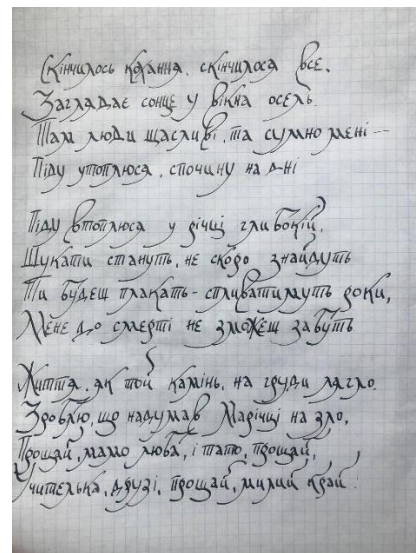 Скінчилось кохання, скінчилося все.
Заглядає сонце у вікна осель.
Там люди щасливі, та сумно мені –
Піду утоплюся, спочину на дні
Піду втоплюся у річці глибокій,
Шукати стануть, не скоро знайдуть
Ти будеш плакать - спливатимуть роки,
Мене до смерті не зможеш забуть
Життя, як той камінь, на груди лягло.
Зроблю, що надумав Марічці на зло,
Прощай, мамо люба, і тату, прощай,
Учителька, друзі, прощай, милий край!